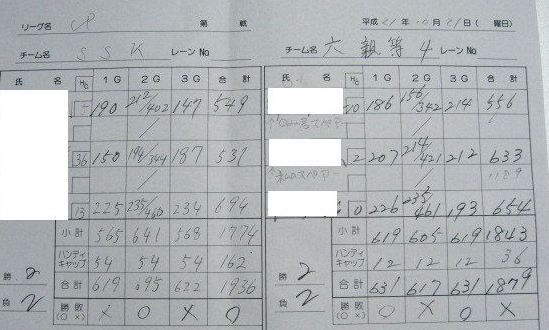 リーグ名 CP 第 戦
チーム名 SSK レーン No
氏 名 HC 1G 2G 3G 合計
190 212/402 147 549
36 150 194/344 187 531
13 225 235/460 234 694
小計 565 641 568 1774
ハンディキャップ 54 54 54 162
合計 619 695 622 1936
勝 2
負 2
勝敗 (○ ×) × ○ × ○
平成 21 年 10 月 21 日 ( 曜日)
チーム名 六親等4 レーン No
氏 名 HC 1G 2G 3G 合計
10 186 156/342 214 556
2 207 214/421 212 633
1189
0 226 235/461 193 654
小計 619 605 619 1843
ハンディキャップ 12 12 12 36
合計 631 617 631 1879
勝 2
負 2
勝敗 (○ ×) ○ × ○ ×